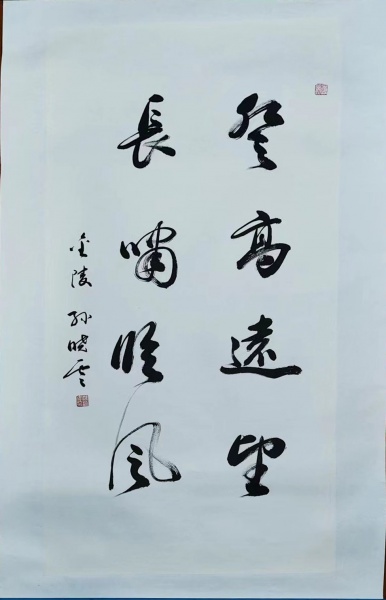 登高遠望
長嘯臨風
金陵 孫曉雲